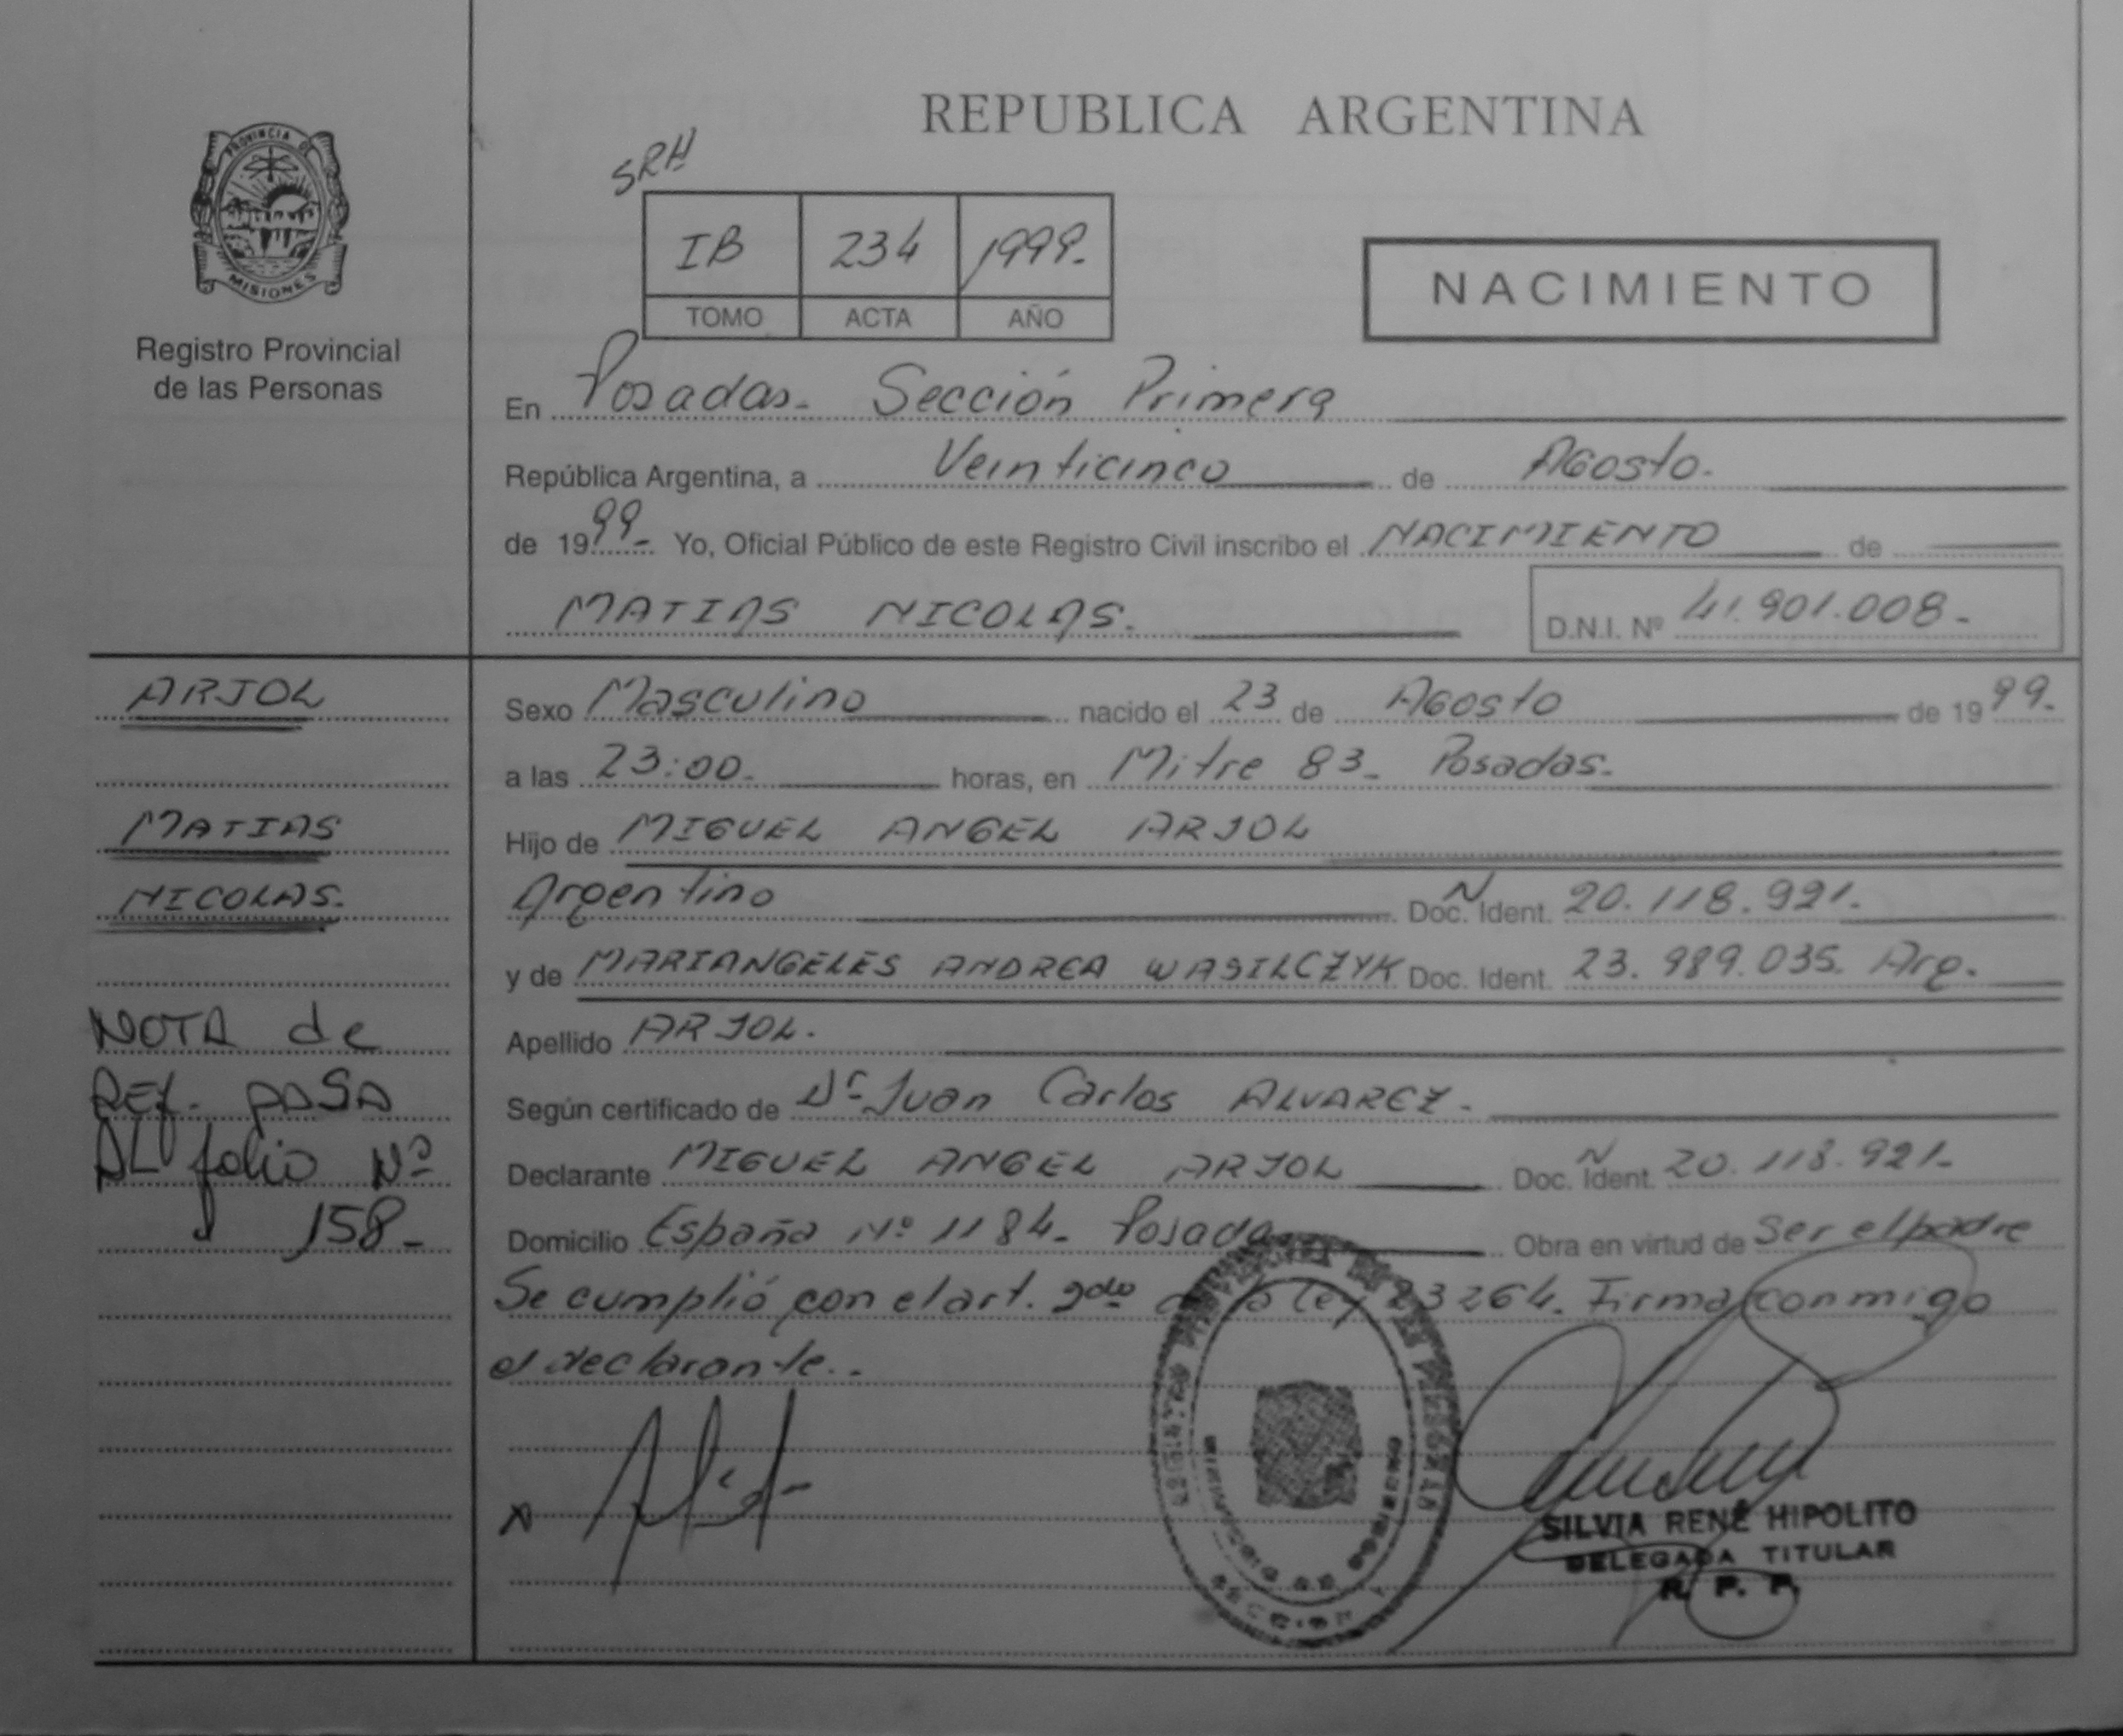 REPUBLICA ARGENTINA
PROVINCIA DE
MISIONES
Registro Provincial
de las Personas
SRH
IB 234 1999.
TOMO ACTA AÑO
NACIMIENTO
En Posadas. Sección Primera
República Argentina, a Veinticinco de Agosto.
de 1999. Yo, Oficial Público de este Registro Civil inscribo el NACIMIENTO de
MATIAS NICOLAS. D.N.I. Nº 41.901.008-
ARJOL
MATIAS
NICOLAS.
NOTA de
REf. PASA
AL folio Nº
158-
Sexo Masculino nacido el 23 de Agosto de 1999.
a las 23:00. horas, en Mitre 83- Posadas.
Hijo de MIGUEL ANGEL ARJOL
Argentino Doc. Ident. N 20.118.921.
y de MARIANGELES ANDREA WASILCZYK Doc. Ident. 23.989.035. Arg.
Apellido ARJOL.
Según certificado de Dr Juan Carlos ALVAREZ.
Declarante MIGUEL ANGEL ARJOL Doc. Ident. N 20.118.921-
Domicilio España Nº 1184. Posadas Obra en virtud de Ser el padre
Se cumplió con el art. 2do de la ley 23264. Firma conmigo
el declarante..
SECCION 1
SILVIA RENÉ HIPOLITO
DELEGADA TITULAR
R. P. P.